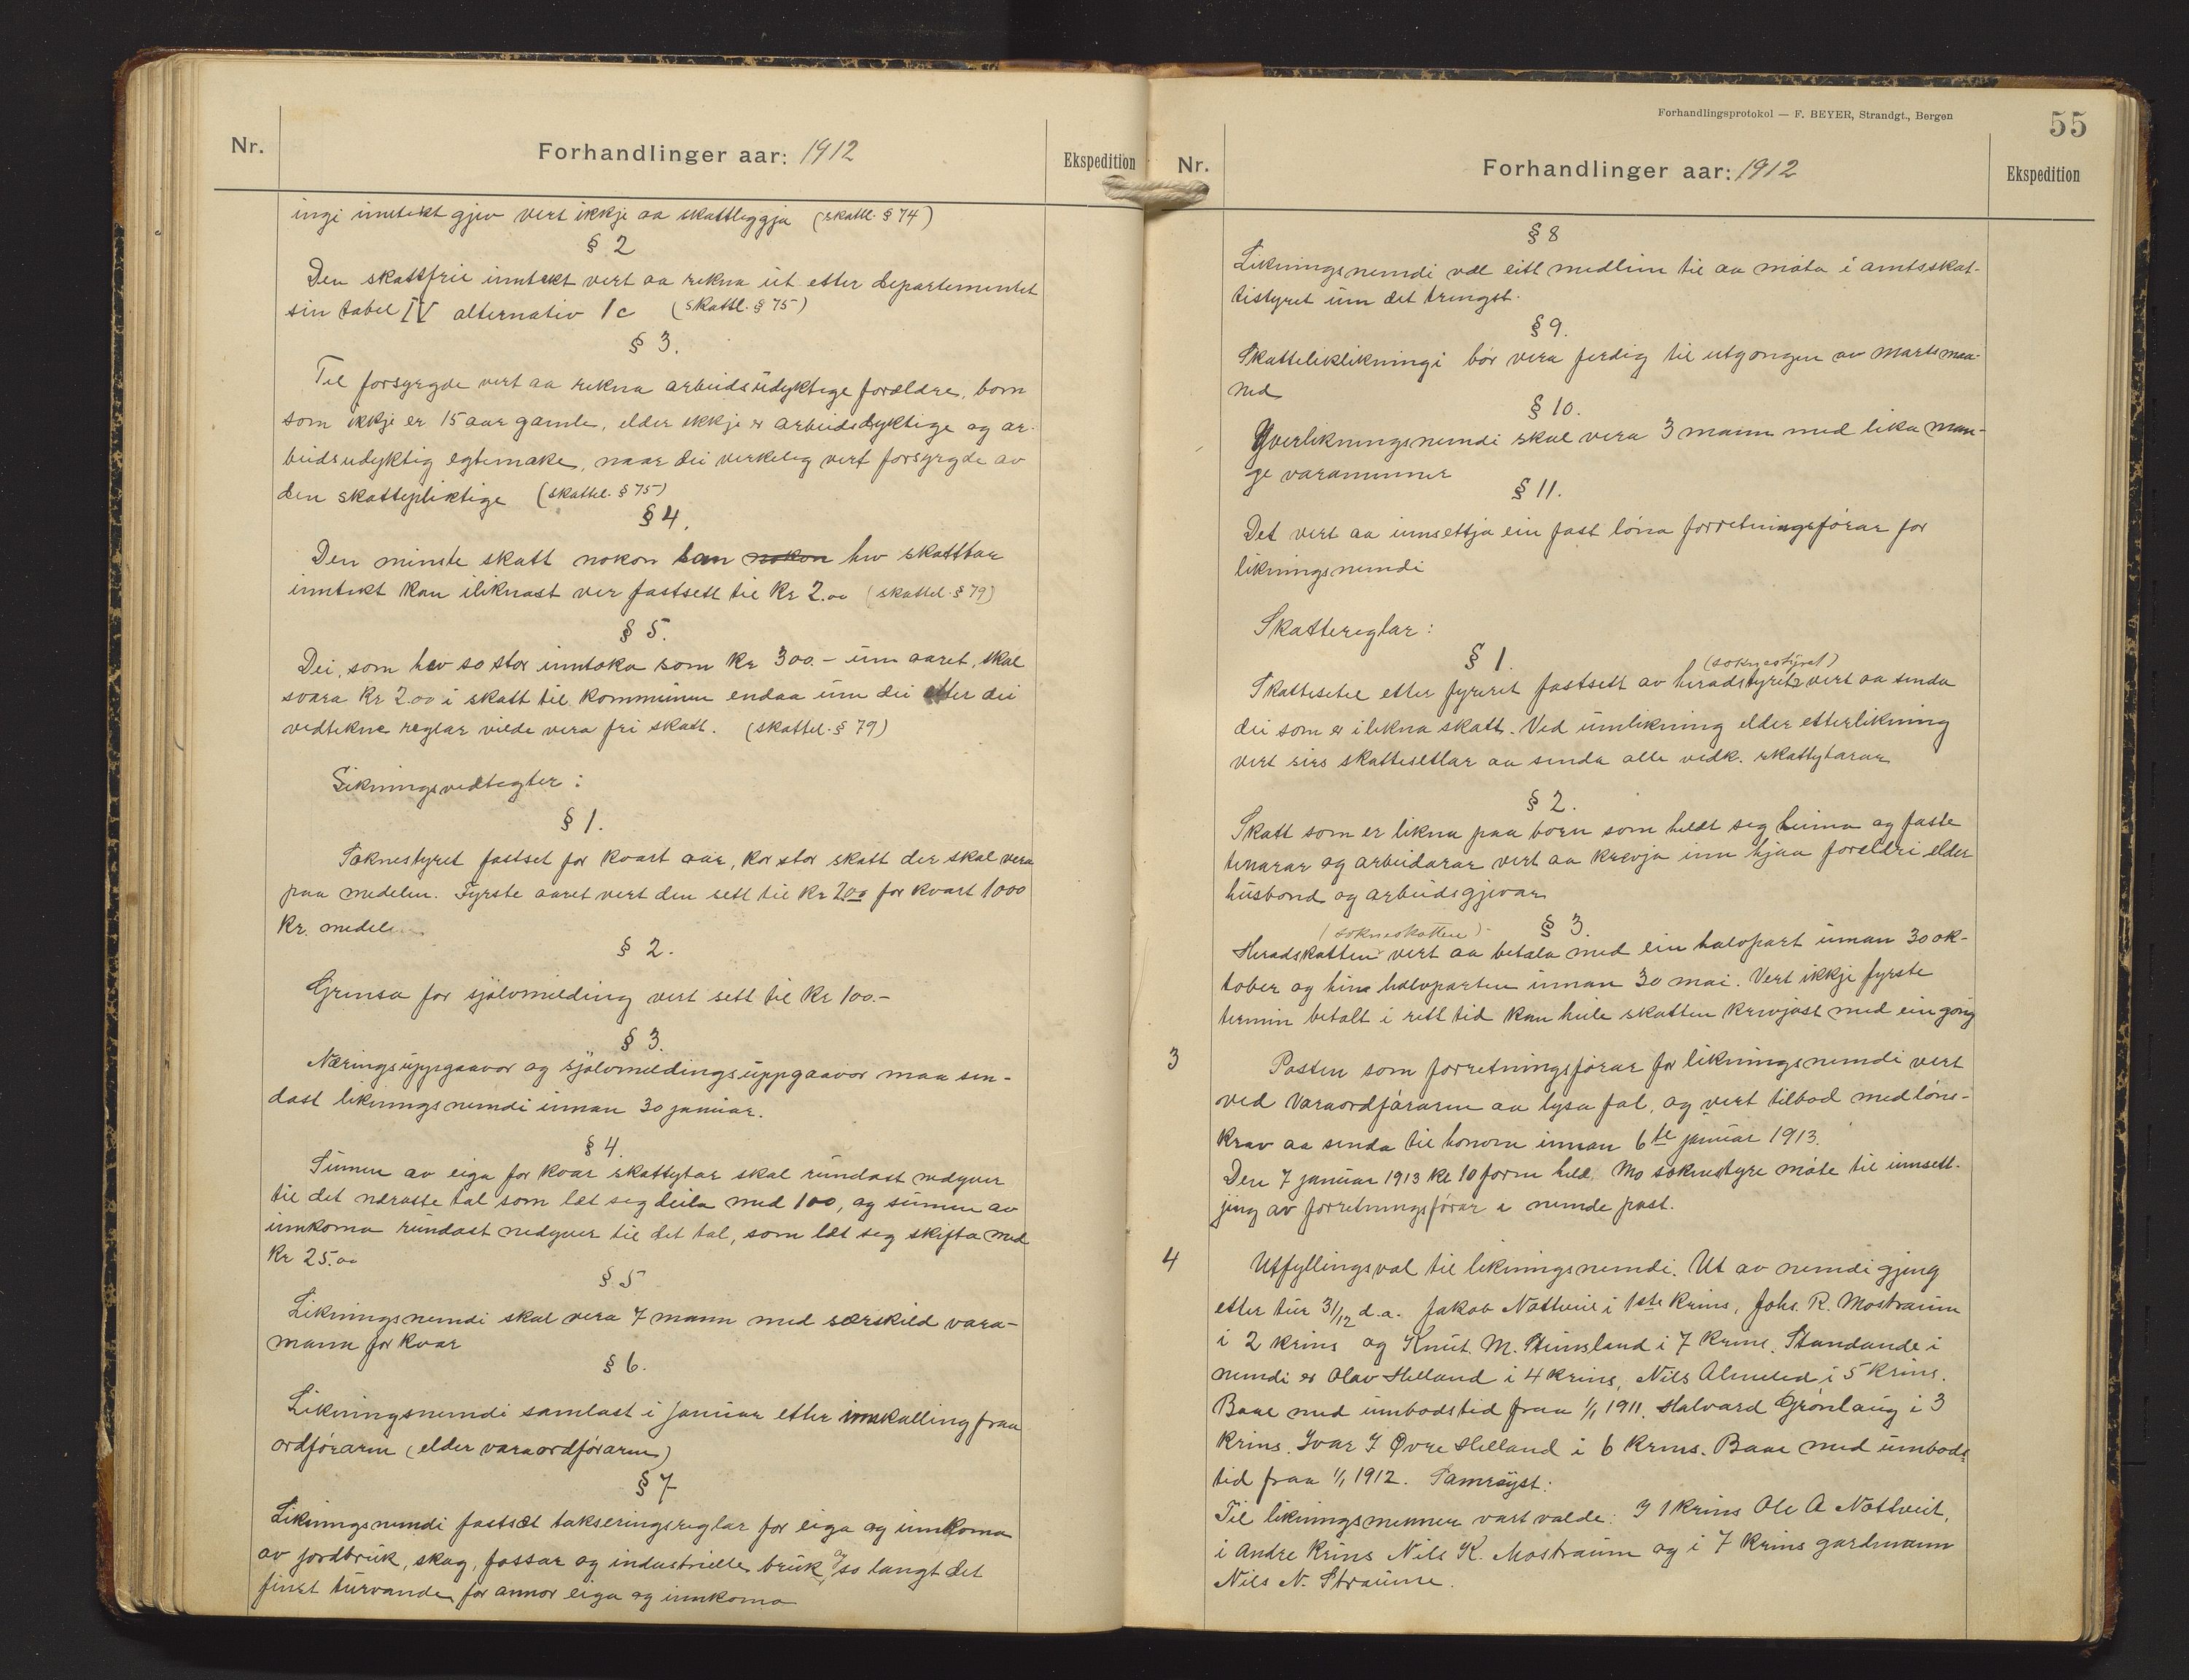 Nr.
Forhandlinger aar: 1912
Ekspedition
ingi inntekt gjev vert ikkje aa skattleggja (skattl. § 74)
§ 2
Den skattfrie inntekt vert aa rekna ut etter departementet
sin tabel IV alternativ 1c (skattl. § 75)
§ 3.
Til forsyrgde vert aa rekna arbeidsudyktige foreldre, born
som ikkje er 15 aar gamle, elder ikkje er arbeidsdyktige og ar-
beidsudyktig egtemake, naar dei verkeleg vert forsyrgde av
den skattepliktige (skattel. § 75)
§ 4.
Den minste skatt nokon som nokon hev skattbar
inntekt kan iliknast ver fastsett til Kr 2.00 (skattel. § 79)
§ 5.
Dei, som hev so stor inntoka som Kr 300.- um aaret, skal
svara Kr 2.00 i skatt til kommunen endaa um dei etter dei
vedtekne reglar vilde vera fri skatt. (skattel. § 79)
Likningsvedtegter:
§ 1.
Soknestyret fastset for kvart aar, kor stor skatt der skal vera
paa medelen. Fyrste aaret vert den sett til Kr 2.00 for kvart 1000
Kr. medel
§ 2.
Grensa for sjølvmelding vert sett til Kr 100.-
§ 3.
Næringsuppgaavor og sjølvmeldingsuppgaavor maa sen-
dast likningsnemdi innan 30 januar.
§ 4.
Sumen av eiga for kvar skattytar skal rundast nedyver
til det næraste tal som læt seg deila med 100, og sumen av
innkoma rundast nedyver til det tal, som læt seg skifta med
Kr 25.00
§ 5
Likningsnemdi skal vera 7 mann med særskild vara-
mann for kvar
§ 6.
Likningsnemdi samlast i januar etter innkalling fraa
ordførarin (elder varaordførarin)
§ 7
Likningsnemdi fastset takseringsreglar for eiga og innkoma
av jordbruk, skog, fossar og industrielle bruk, so langt det
finst turvande for annor eiga og innkoma
Forhandlingsprotokol — F. BEYER, Strandgt., Bergen
55
Nr.
Forhandlinger aar: 1912
Ekspedition
§ 8
Likningsnemdi vel eitt medlem til aa møta i amtsskat-
tistyret um det trengst.
§ 9.
Skatteliklikningi bør vera ferdig til utgongen av marts maa-
ned
§ 10.
Yverlikningsnemdi skal vera 3 mann med lika man-
ge varamenner
§ 11.
Det vert aa innsettja ein fast løna forretningsførar for
likningsnemdi
Skattereglar:
§ 1.
(soknestyret)
Skattesetel etter fyreret fastsett av heradstyret vert aa senda
dei som er ilikna skatt. Ved umlikning elder etterlikning
vert sers skattesetlar aa senda alle vedk. skattytarar
§ 2.
Skatt som er likna paa born som heldt seg heima og faste
tenarar og arbeidarar vert aa krevja inn hjaa foreldri elder
husbond og arbeidsgjevar
§ 3.
(sokneskatten)
Heradskatten vert aa betala med ein halvpart innan 30 ok-
tober og hine halvparten innan 30 mai. Vert ikkje fyrste
termin betalt i rett tid kan heile skatten krevjast med ein gong
3
Posten som forretningsførar for likningsnemdi vert
ved varaordførarin aa lysa fal, og vert tilbod med løns-
krav aa senda til honom innan 6te januar 1913.
Den 7 januar 1913 kl 10 form held Mo soknestyre møte til innsett-
jing av forretningsførar i nemde post.
4
Utfyllingsval til likningsnemdi. Ut av nemdi gjeng
etter tur 31/12 d.a. Jakob Nottveit i 1ste krins, Johs. R. Mostraum
i 2 krins og Knut M. Steinsland i 7 krins. Standande i
nemdi er Olav Helland i 4 krins, Nils Almelid i 5 krins.
Baae med umbodstid fraa 1/1 1911. Halvard Grønlaug i 3
krins. Ivar J Øvre Helland i 6 krins. Baae med umbods
tid fraa 1/1 1912. Samrøyst:
Til likningsmenner vart valde: I 1 krins Ole A Nottveit,
i andre krins Nils K. Mostraum og i 7 krins gardmann
Nils N. Straume.